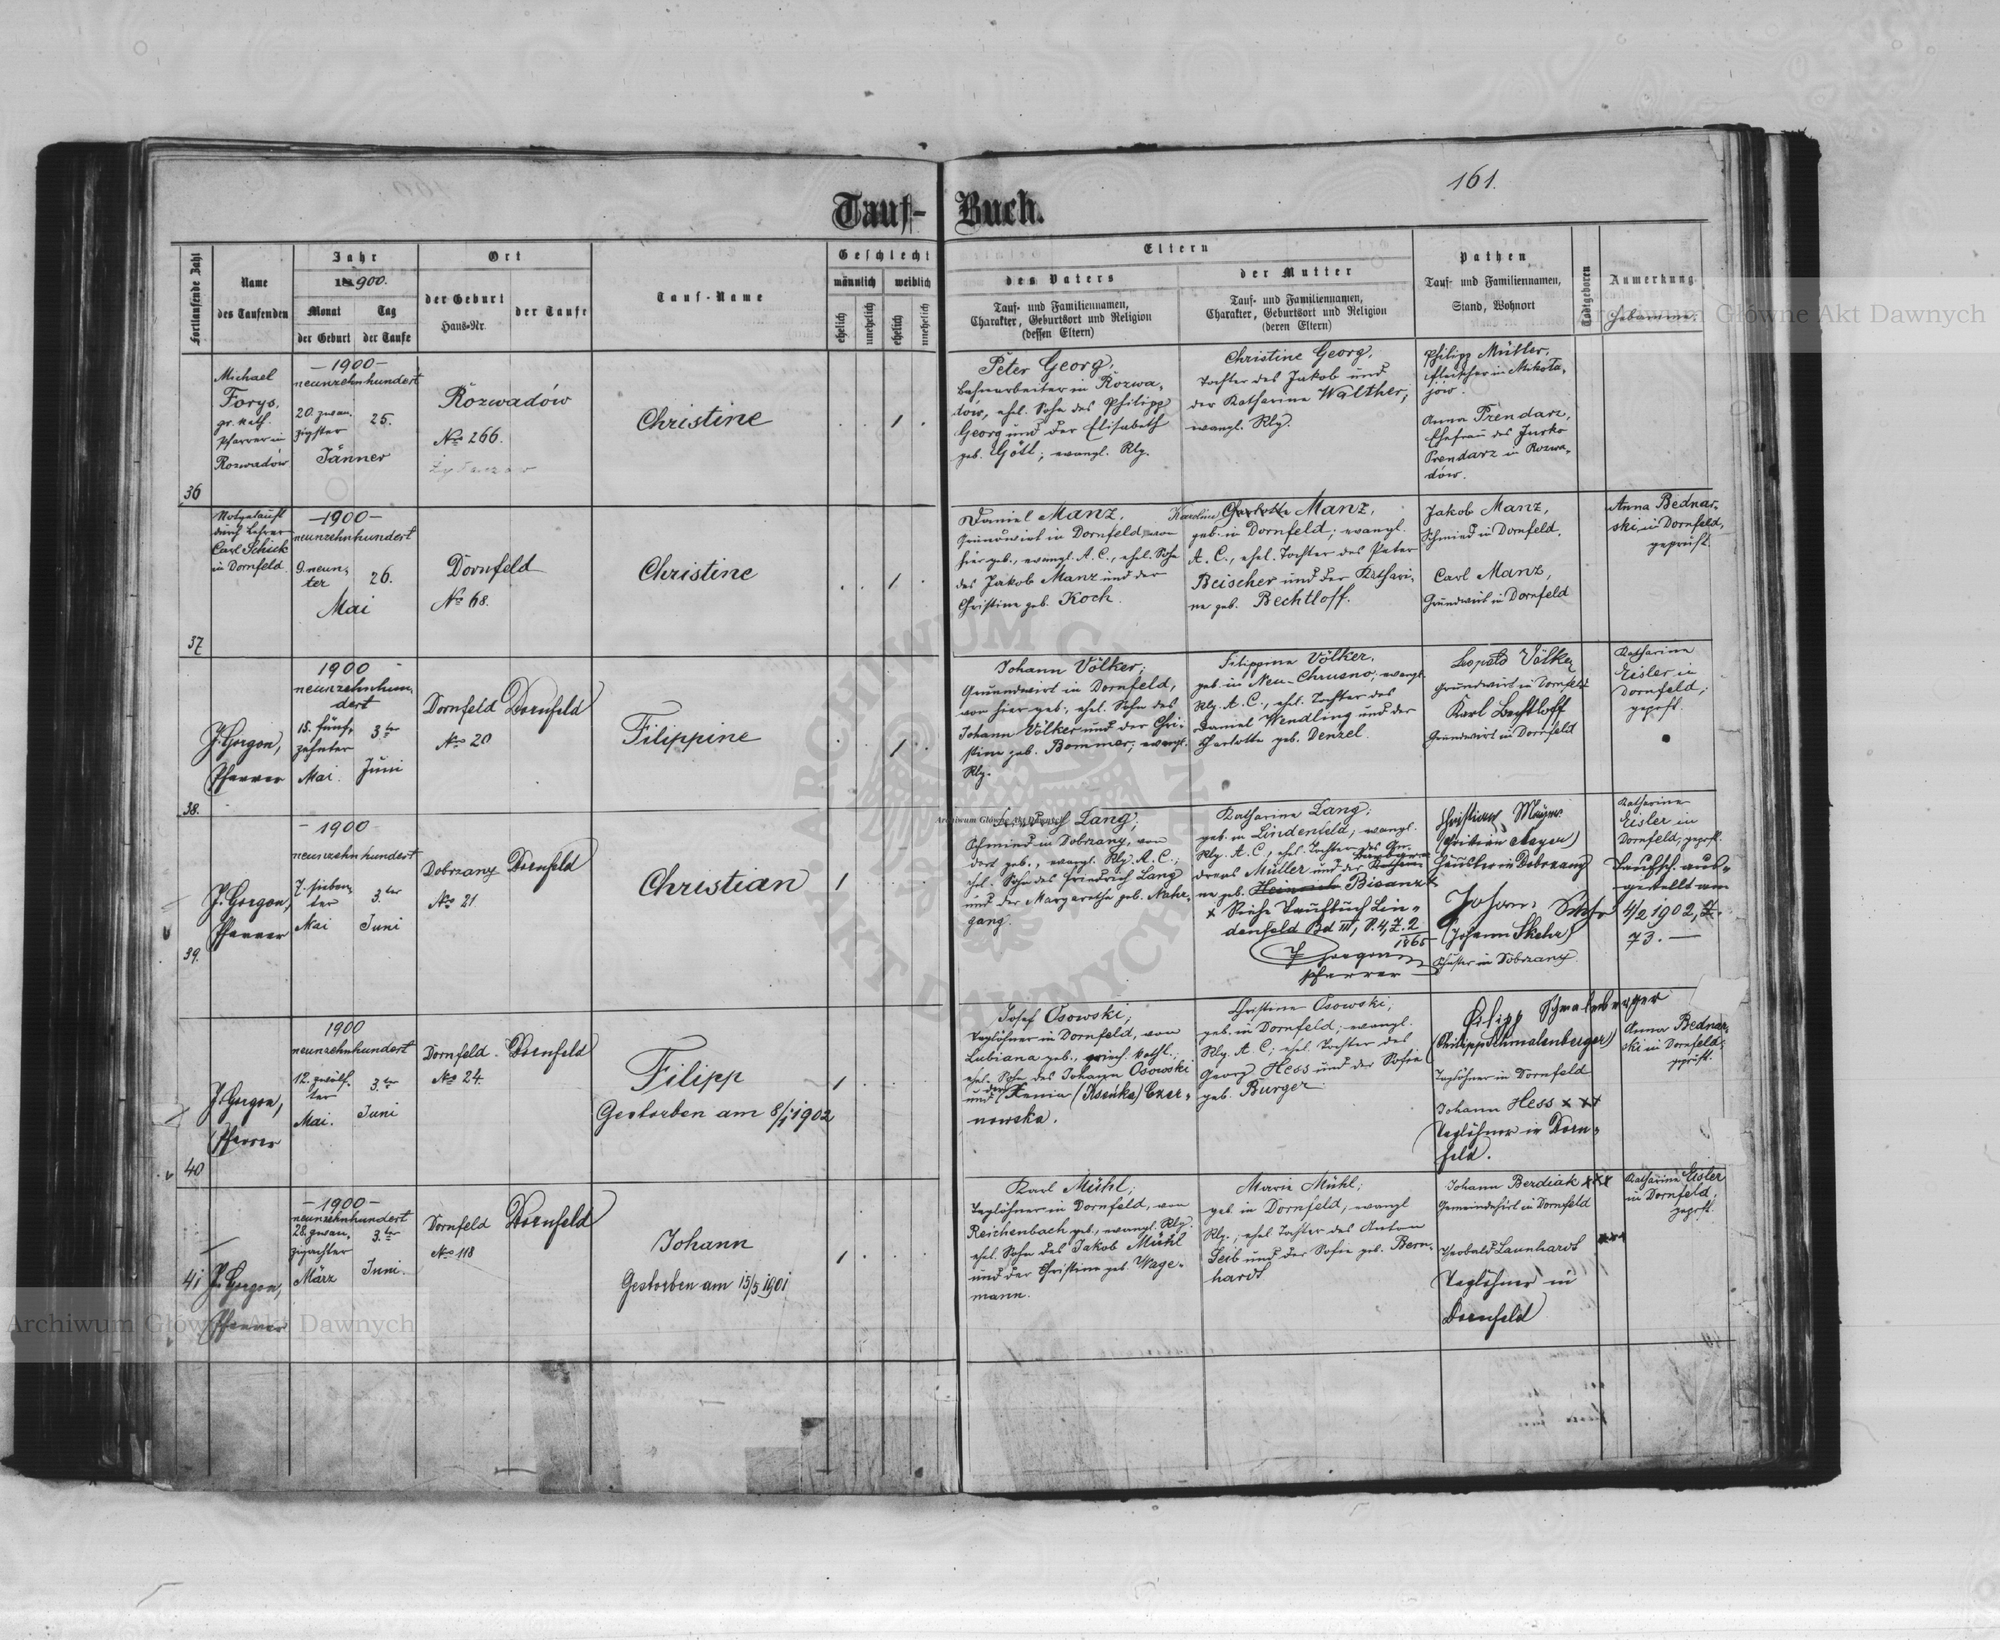 161.
Tauf- Buch.
Fortlaufende Zahl
Name
des Taufenden
Jahr
1900.
Monat
der Geburt
Tag
der Taufe
Ort
der Geburt
Haus-Nr.
der Taufe
Tauf-Name
Geschlecht
männlich
weiblich
ehelich
unehelich
ehelich
unehelich
Eltern
des Vaters
Tauf- und Familiennamen,
Charakter, Geburtsort und Religion
(dessen Eltern)
der Mutter
Tauf- und Familiennamen,
Charakter, Geburtsort und Religion
(deren Eltern)
Pathen,
Tauf- und Familiennamen,
Stand, Wohnort
Todtgeboren
Anmerkung.
Hebamme.
36
Michael
Forys,
gr. kath.
Pfarrer in
Rozwadów
– 1900 –
neunzehnhundert
20. zwan-
zigster
Jänner
25.
Rozwadów
No 266.
Christine
1
Peter Georg,
Bahnarbeiter in Rozwa-
dów, ehel. Sohn des Philipp
Georg und der Elisabeth
geb. Gött; evangl. Rlg.
Christine Georg,
Tochter des Jakob und
der Katharina Walther,
evangl. Rlg.
Philipp Müller,
Fleischer in Mikoła-
jów.
Anna Prendarz,
Ehefrau des Jurko
Prendarz in Rozwa-
dów.
37
Notgetauft
durch Lehrer
Carl Schick
in Dornfeld
– 1900 –
neunzehnhundert
9. neun-
ter
Mai
26.
Dornfeld
No 68.
Christine
1
Daniel Manz,
Grundwirt in Dornfeld, von
hier geb., evangl. A. C., ehel. Sohn
des Jakob Manz und der
Christine geb. Koch.
Karoline Charlotte Manz,
geb. in Dornfeld; evangl.
A. C., ehel. Tochter des Peter
Beischer und der Kathari-
ne geb. Bechtloff.
Jakob Manz,
Schmied in Dornfeld,
Carl Manz,
Grundwirt in Dornfeld
Anna Bednar-
ski in Dornfeld,
geprüft.
38.
J. Gorgon,
Pfarrer
1900 –
neunzehnhun-
dert
15. fünf-
zehnter
Mai.
3ter
Juni
Dornfeld
No 20
Dornfeld
Filippine
1
Johann Völker;
Grundwirt in Dornfeld,
von hier geb., ehel. Sohn des
Johann Völker und der Chri-
stine geb. Bommer; evangl.
Rlg.
Filippine Völker,
geb. in Neu-Chrusno; evangl.
Rlg. A. C., ehel. Tochter des
Daniel Wendling und der
Charlotte geb. Denzel.
Leopold Völker
Grundwirt in Dornfeld
Karl Bechtloff
Grundwirt in Dornfeld
Katharine
Eisler in
Dornfeld;
geprft.
39.
J. Gorgon,
Pfarrer
– 1900
neunzehnhundert
7. sieben-
ter
Mai
3.ter
Juni
Dobrzany
No 21
Dornfeld
Christian
1
Lang;
Schmied in Dobrzany, von
dort geb., evangl. Rlg. A. C.;
ehel. Sohn des Friedrich Lang
und der Margaretha geb. Nahr-
gang.
Katharina Lang;
geb. in Lindenfeld; evangl.
Rlg. A. C., ehel. Tochter des An-
dreas Müller und der Barbara
ne geb. Heinrich Bisanz
x Siehe Taufbuch Lin-
denfeld Bd III, P. 4, Z. 2
1865
J Gorgon
Pfarrer
Christian Mayer
(Christian Mayer)
Häusler in Dobrzany
Johann
(Johann Skehr)
Schuster in Dobrzany.
Katharine
Eisler in
Dornfeld, geprft.
Taufsch. aus-
gestellt am
4/2 1902, Z.
73. –
40
J. Gorgon,
Pfarrer
1900
neunzehnhundert
12. zwölf-
ter
Mai.
3.ter
Juni
Dornfeld.
No 24.
Dornfeld
Filipp
Gestorben am 8/1 1902
1
Josef Osowski;
Taglöhner in Dornfeld, von
Lubiana geb., griech. kathl.;
ehel. Sohn des Johann Osowski
und der Xenia (Ksenka) Czer-
nowska.
Christine Osowski;
geb. in Dornfeld; evangl.
Rlg. A. C; ehel. Tochter des
Georg Hess und der Sofie
geb. Burger
Filipp Schmalenberger
(Philipp Schmalenberger)
Taglöhner in Dornfeld
Johann Hess x x x
Taglöhner in Dorn-
feld.
Anna Bednar-
ski in Dornfeld,
geprüft.
41
J. Gorgon,
Pfarrer
– 1900 –
neunzehnhundert
28. zwan-
zigachter
März
3.ter
Juni.
Dornfeld
No 118
Dornfeld
Johann
Gestorben am 15/5 1901
1
Karl Mühl;
Taglöhner in Dornfeld, von
Reichenbach geb., evangl. Rlg.
ehel. Sohn des Jakob Mühl
und der Christine geb. Wage-
mann.
Marie Mühl;
geb. in Dornfeld; evangl
Rlg., ehel. Tochter des Anton
Leib und der Sofie geb. Bern-
hardt
Johann Berdiak xxx
Gemeindehirt in Dornfeld
Theobald Launhardt xxx
Taglöhner in
Dornfeld
Katharine Eisler
in Dornfeld;
geprft.
Archiwum Główne Akt Dawnych
Archiwum Główne Akt Dawnych
Archiwum Główne Akt Dawnych
ARCHIWUM GŁÓWNE AKT DAWNYCH